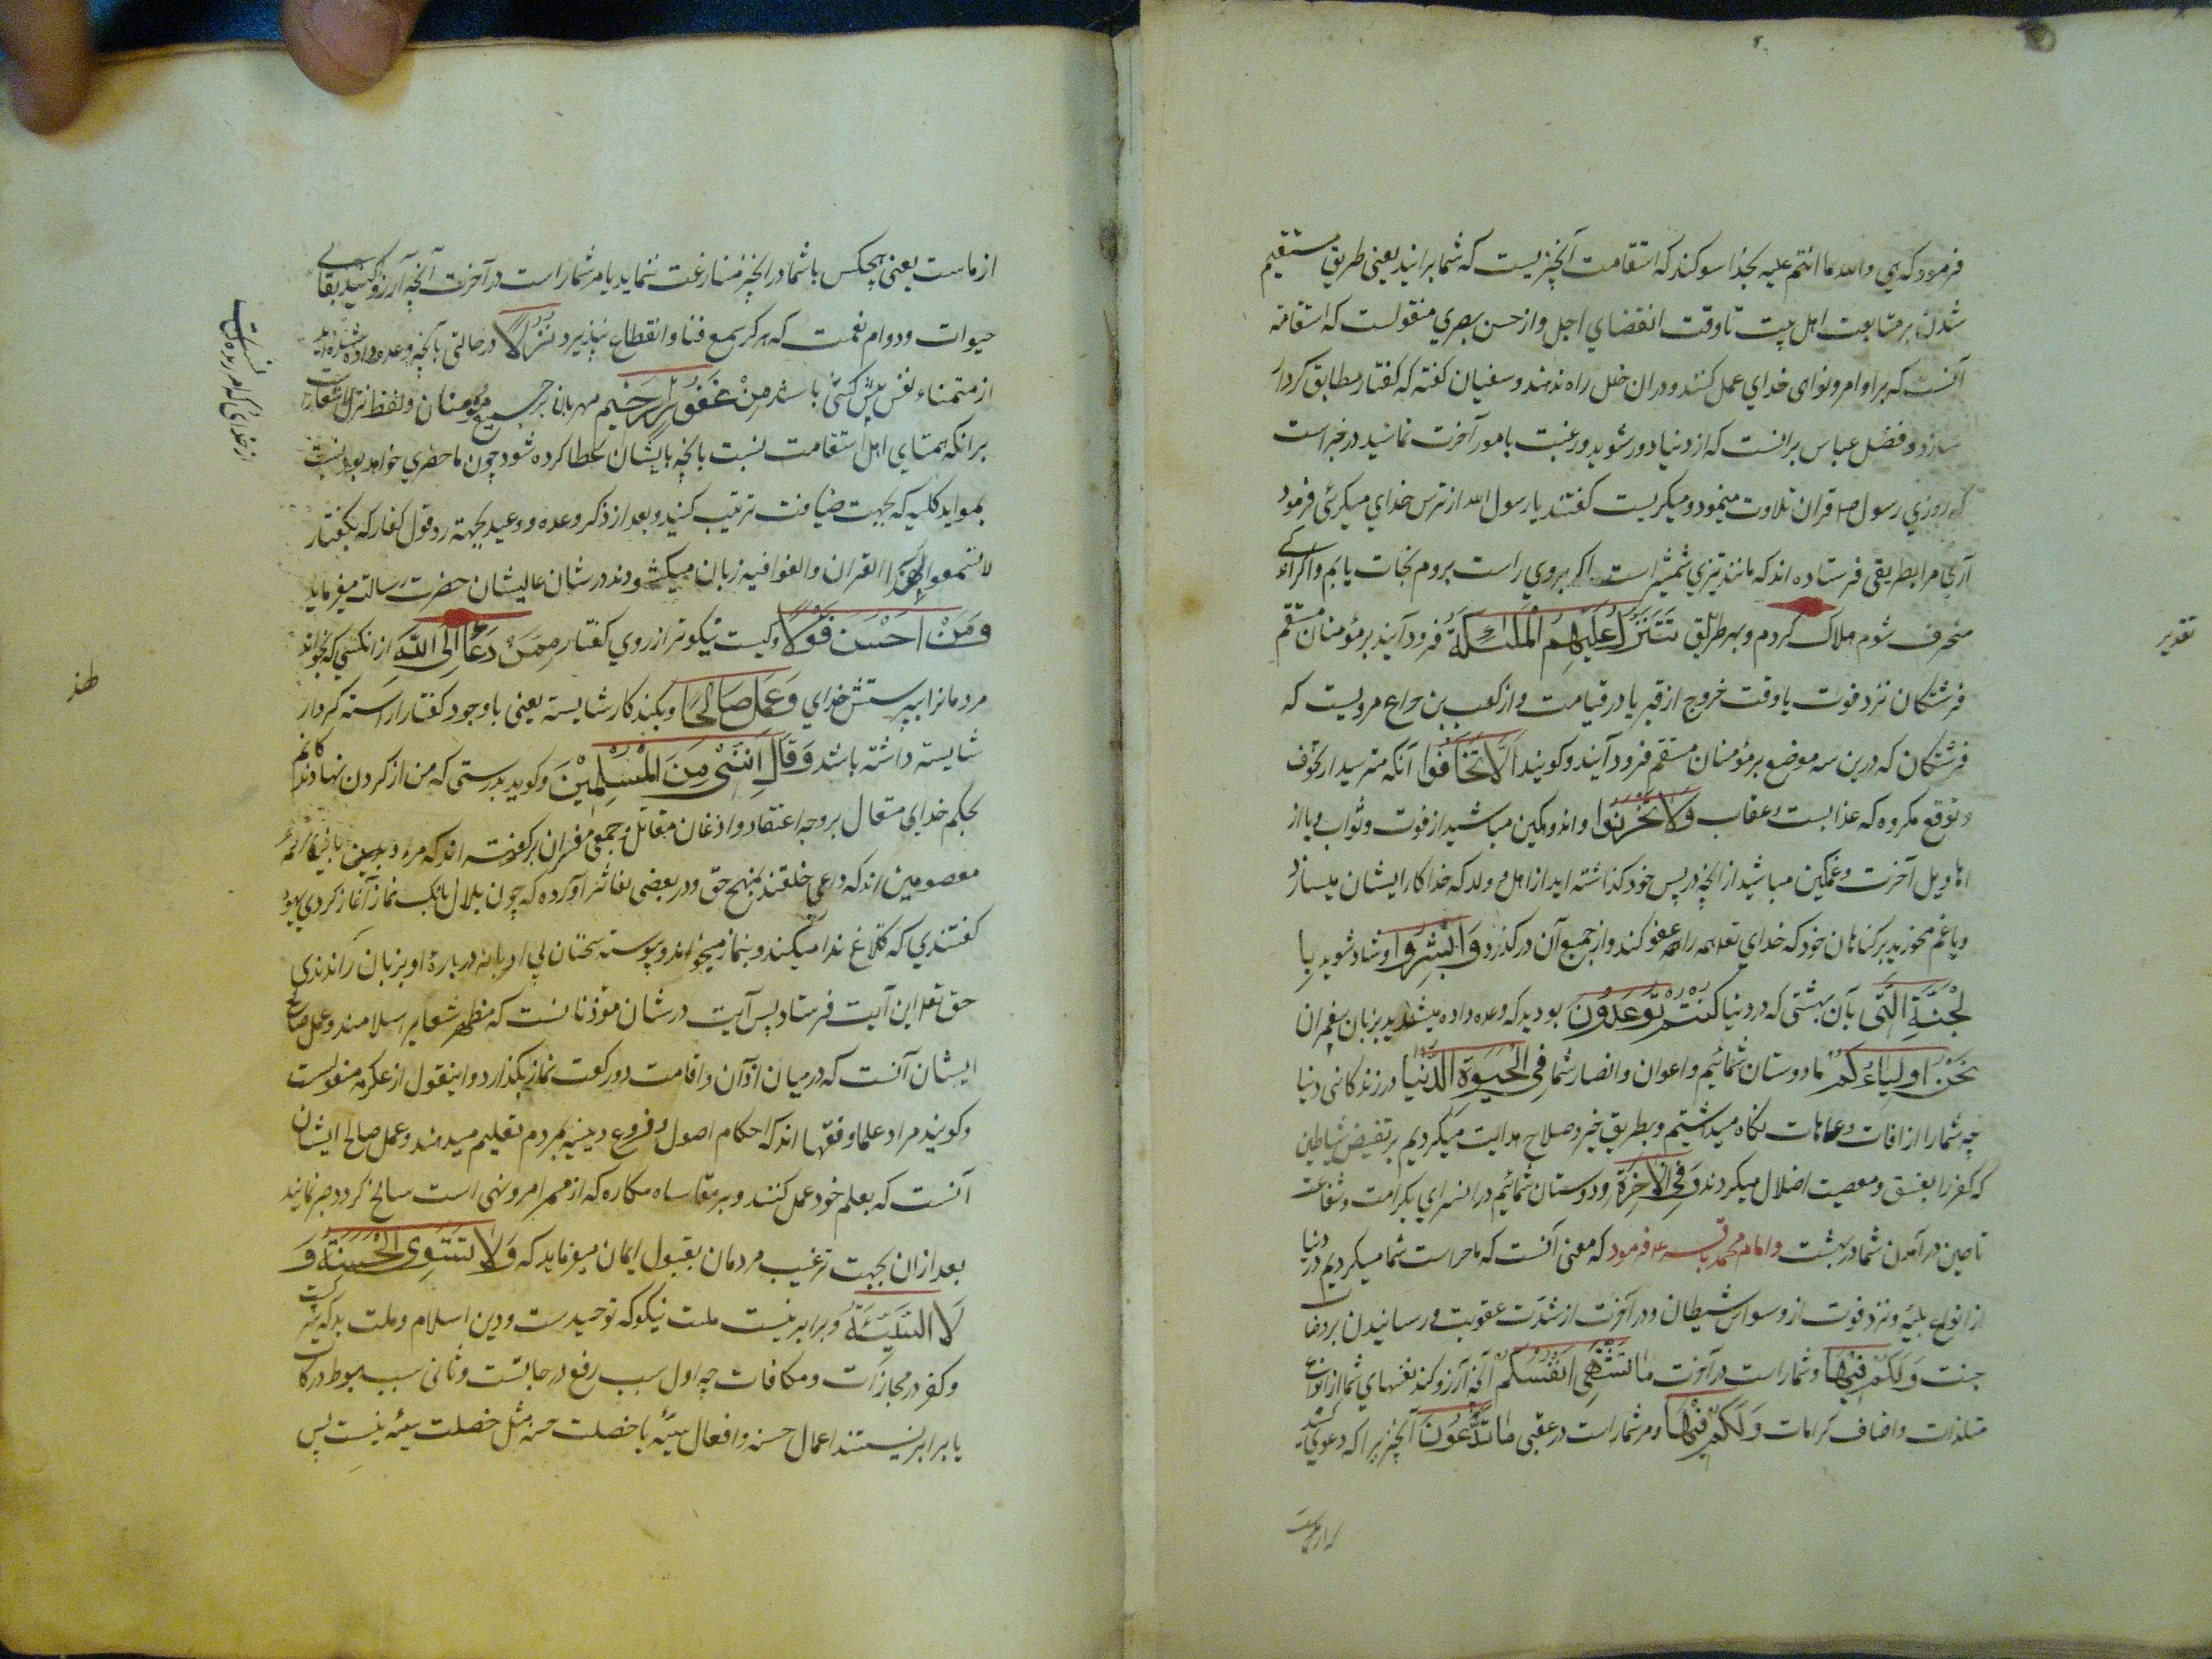 فرمود که هی والله ما انتم علیه بخدا سوکند که استقامت آنچیزیست که شما برانید یعنی طریق مستقیم
شدن بر متابعت اهل بیت تا وقت انقضای اجل و از حسن بصری منقولست که استقامة
آنست که بر اوامر و نواهی خدای عمل کنند و دران خلل راه ندهند و سفیان کفته که کفتار مطابق کردار
سازد و فضل عباس برانست که از دنیا دور شوید و رغبت بامور آخرت نمائید در خبر است
که روزی رسول ص قران تلاوت مینمود و میکریست کفتند یا رسول الله از ترس خدای میکرئی فرمود
آری مرا بطریقی فرستاده اند که مانند تیزی شمشیر است اکر بروی راست بروم نجات یابم و اکر از وی
منحرف شوم هلاک کردم و بهر طریق تَتَنَزَّلُ عَلَیْهِمُ الْمَلٰئِکَةُ فرود آیند بر مؤمنان مستقیم
فرشتکان نزد فوت یا وقت خروج از قبر یا در قیامت و از کعب بن جراح مرویست که
فرشتکان که درین سه موضع بر مؤمنان مستقیم فرود آیند و کویند اَلَّا تَخَافُوا آنکه مترسید از خوف
و توقع مکروه که عذابست و عقاب وَلَا تَحْزَنُوا و اندوهکین مباشید از فوت و ثواب و یا از
اهاویل آخرت و غمکین مباشید از انچه در پس خود کذاشته اید از اهل و ولد که خدا کار ایشان میسازد
و یا غم مخورید بر کناهان خود که خدای تعالی همه را عفو کند و از جمیع آن درکذرد وَاَبْشِرُوا و شاد شوید بِا
لْجَنَّةِ الَّتِی بآن بهشتی که در دنیا کُنْتُمْ تُوعَدُونَ بودید که وعده داده میشدید بر زبان پیغمبران
نَحْنُ اَوْلِیَاءُکُمْ ما دوستان شمائیم و اعوان و انصار شما فِی الْحَیٰوةِ الدُّنْیَا در زندکانی دنیا
چه شما را از افات و عاهات نکاه میداشتیم و بطریق خیر و صلاح هدایت میکردیم بر نقیض شیاطین
که کفر را بفسق و معصیت اضلال میکردند وَفِی الْاٰخِرَةِ و دوستان شمائیم در انسرای بکرامت و شفاعت
تا حین درآمدن شما در بهشت و امام محمد باقر ع فرمود که معنی آنست که ما حراست شما میکردیم در دنیا
از انواع بلیه و نزد فوت از وسواس شیطان و در آخرت از شدت عقوبت و رسانیدن بر درجات
جنت وَلَکُمْ فِیهَا و شما راست در آخرت مَا تَشْتَهِی اَنْفُسُکُمْ آنچه آرزو کند نفسهای شما از انواع
متلذذات و اصناف کرامات وَلَکُمْ فِیهَا و مر شما راست در عقبی مَا تَدَّعُونَ آنچیز را که دعوی کنید
تقدیر
از ماست یعنی هیچکس با شما در انچیز منازعت ننماید یا مر شما راست در آخرت آنچه آرزو کنید بقای
حیوات و دوام نعمت که هرکز سمع فنا و انقطاع نپذیرد نُزُلًا در حالتی که آنچه وعده داده شده اید
از متمناء نفس پیش کشی باشد مِنْ غَفُورٍ رَحِیمٍ مهربان بر جمیع مؤمنان و لفظ نزل اشعار است
برانکه همتای اهل استقامت نسبت بانچه بایشان عطا کرده شود چون ماحضری خواهد بود نسبت
بموایدکلیه که بجهت ضیافت ترتیب کنند و بعد از ذکر وعده و وعید بجهة رد قول کفار که بکفتار
لا تسمعوا لهذا القران والغوا فیه زبان میکشودند در شان عالیشان حضرت رسالت میفرماید
وَمَنْ اَحْسَنُ قَوْلًا و کیست نیکوتر از روی کفتار مِمَّنْ دَعَا اِلَی اللّٰهِ از انکسی که بخواند
مردمانرا بپرستش خدای وَعَمِلَ صَالِحًا و بکند کار شایسته یعنی با وجود کفتار اراسته کردار
شایسته داشته باشد وَقَالَ اِنَّنِی مِنَ الْمُسْلِمِینَ و کوید بدرستی که من از کردن نهادکانم
بحکم خدای متعال بر وجه اعتقاد و اذعان مقاتل و جمعی مفسران برکفته اند که مراد بدین بانیکان ائمه
معصومین اند که داعی خلقند بمنهج حق و در بعضی تفاسیر آورده که چون بلال بانک نماز آغاز کردی یهود
کفتندی که کلاغ ندا میکند و بنماز میخواند و پیوسته سخنان بی ادبانه درباره او بر زبان راندندی
حق تعالی این آیت فرستاد پس آیت در شان مؤذنانست که مظهر شعایر اسلامند و عمل صالح
ایشان آنست که در میان اذان و اقامت دو رکعت نماز بکذارد و اینقول از عکرمه منقولست
و کویند مراد علما و فقها اند که احکام اصول و فروع دینیه بمردم تعلیم میدهند و عمل صالح ایشان
آنست که بعلم خود عمل کنند و بر مقاساه مکاره که از ممر امر و نهی است سانح کردد صبر نمایند
بعد ازان بجهت ترغیب مردمان بقبول ایمان میفرماید که وَلَا تَسْتَوِی الْحَسَنَةُ وَ
لَا السَّیِّئَةُ و برابر نیست ملت نیکو که توحیدست و دین اسلام و ملت بد که شرکست
و کفر در مجازات و مکافات چه اول سبب رفع درجاتست و ثانی سبب هبوط درکات
یا برابر نیستند اعمال حسنه و افعال سیئه یا خصلت حسنه مثل خصلت سیئه نیست پس